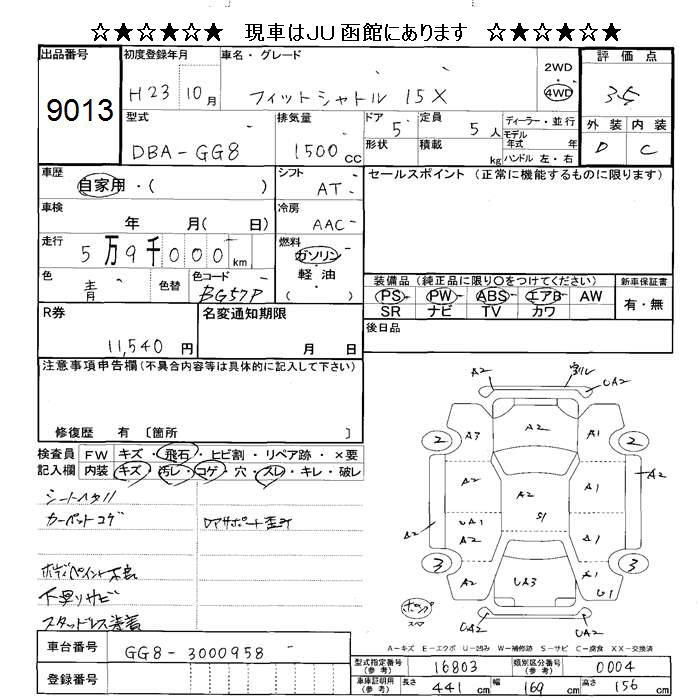 ☆★☆★☆★ 現車はJU函館にあります ☆★☆★☆★
出品番号 9013
初度登録年月 H23 10月
車名・グレード フィットシャトル 15X
2WD ・ 4WD
評価点 3.5
外装 D 内装 C
型式 DBA-GG8
排気量 1500 CC
ドア 5 定員 5人
形状 積載 kg
ディーラー・並行
モデル年式 年式
ハンドル 左・右
車歴 自家用・( )
シフト AT
セールスポイント (正常に機能するものに限ります)
車検 年 月( 日)
冷房 AAC
走行 5万9千000km
燃料 ガソリン・軽油 ( )
色 青 色替 色コード BG57P
装備品 (純正品に限り○をつけてください)
PS PW ABS エアB AW
SR ナビ TV カワ
新車保証書 有・無
R券 11,540 円
名変通知期限 月 日
後日品
注意事項申告欄(不具合内容等は具体的に記入して下さい)
修復歴 有 〔箇所 〕
検査員記入欄
FW キズ・飛石・ヒビ割・リペア跡・×要
内装 キズ・汚レ・コゲ・穴・スレ・キレ・破レ
シートヘタリ
カーペットコゲ
ボディペイント不良
下廻りサビ
スタッドレス装着
A2 UA2
A3 A2 A1
2 2
A2 A2 A1 A2
UA1 S1
A2 A2 A1
3 3
A2 UA3 A1 U1
UA2 UA2
A-キズ E-エクボ U-凹み W-補修跡 S-サビ C-腐食 XX-交換済
車台番号 GG8-3000958
登録番号
型式指定番号(参考) 16803 類別区分番号(参考) 0004
車庫証明用(参考) 長さ 441 cm 幅 169 cm 高さ 156 cm